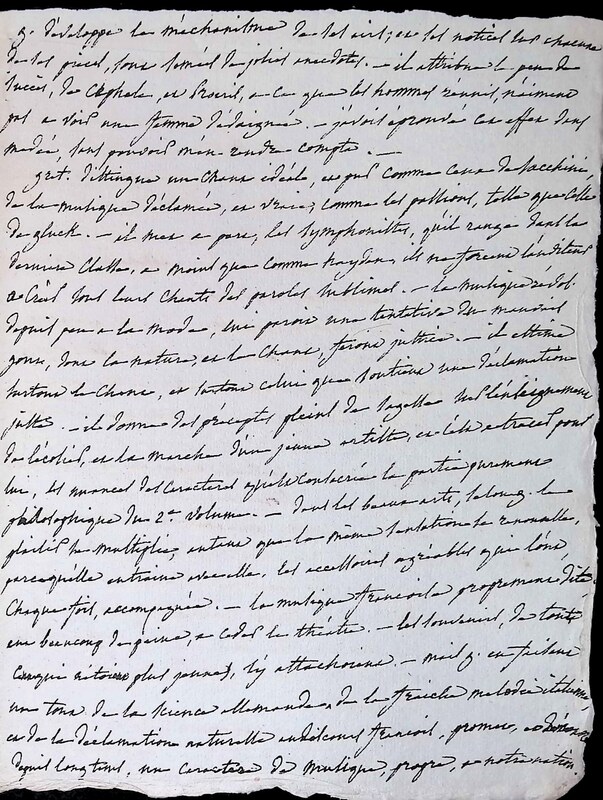 g. développe le méchanisme de ses airs; et les notices sur chacune
de ses pièces, sont semées de jolies anecdotes. — il attribue le peu de
succès, de Céphale, et Procris, a ce que les hommes réunis, n'aiment
pas a voir une femme dédaignée. — j'avois éprouvé cet effet dans
médée, sans pouvoir m'en rendre compte. —
grét. distingue un chant idéale, et pur comme ceux de Sacchini,
de la musique déclamée, et vraie, comme les passions, telle que celle
de gluck. — il met a part, les symphonistes, qu'il range dans la
derniere classe, a moins que comme hayden, ils ne forcent l'auditeur
a créer sous leurs chants des paroles sublimes. — la musique
depuis peu a la mode, lui paroit une tentative du mauvais
goust, dont la nature, et le chant, feront justice. — il estime
surtout le chant, et surtout celui que soutient une déclamation
juste. — il donne des preceptes pleins de sagesse sur l'enseignement
de l'écolier, et la marche d'un jeune artiste, et c'est a tracer pour
lui, les nuances des caracteres qu'il consacre la partie purement
philosophique du 2e volume. — dans les beaux arts, selon g. le
plaisir se multiplie, autant que la même sensation se renouvelle,
parcequ'elle entraine avec elle, les accessoires agréables qui l'ont,
chaque fois, accompagnée. — la musique francoise proprement dite
eut beaucoup de peine, a ceder le théatre. — les souvenirs, de tout
ce qui n'étoit plus jeune, s'y attachoient. — mais g. en faisant
un tout de la science allemande, de la fraiche melodie italienne,
et de la déclamation naturelle au discours francois, promet, et
depuis longtems, un caractère de musique, propre, a notre nation.